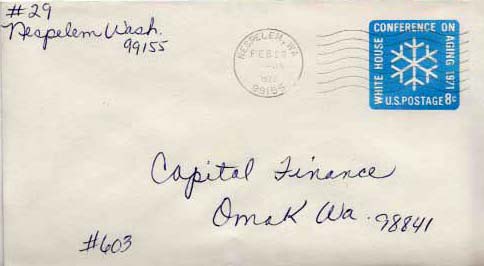 #29
Nespelem Wash.
99155
NESPELEM, WA
FEB
99155
WHITE HOUSE CONFERENCE ON AGING 1971
U.S. POSTAGE 8c
Capital Finance
Omak Wa. 98841
#603